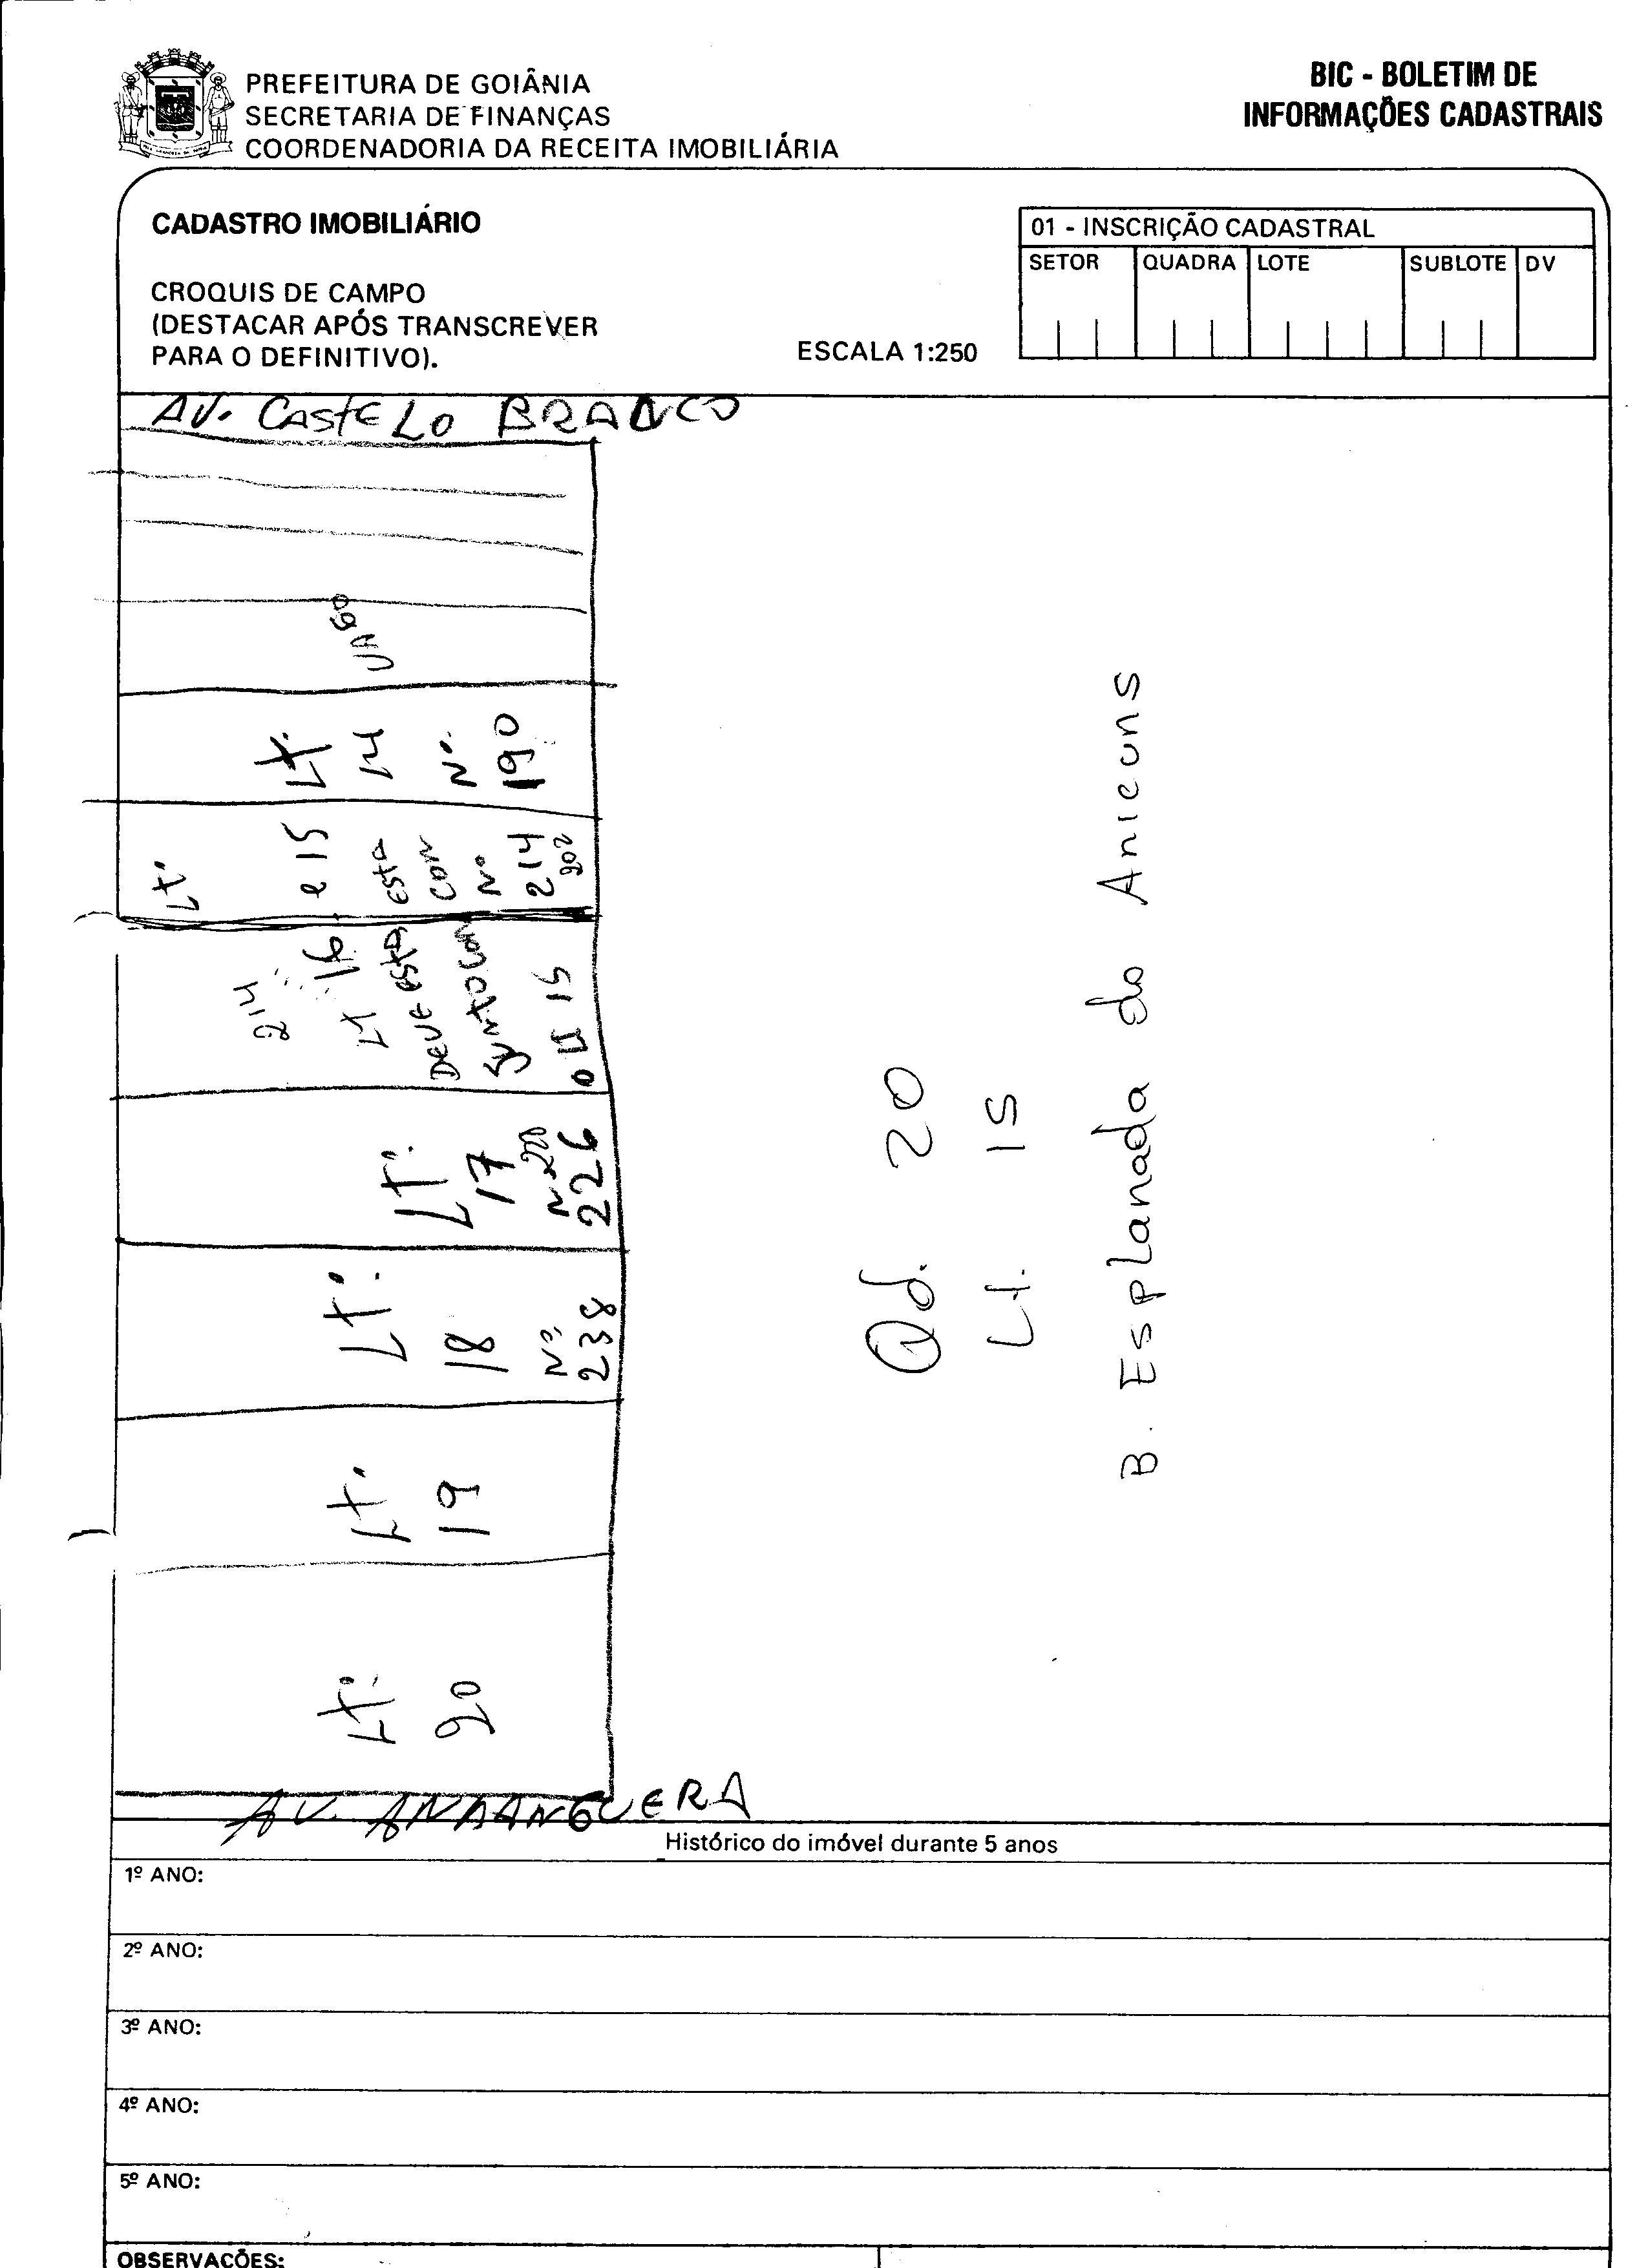 PREFEITURA DE GOIÂNIA
SECRETARIA DE FINANÇAS
COORDENADORIA DA RECEITA IMOBILIÁRIA
BIC - BOLETIM DE
INFORMAÇÕES CADASTRAIS
CADASTRO IMOBILIÁRIO
CROQUIS DE CAMPO
(DESTACAR APÓS TRANSCREVER
PARA O DEFINITIVO).
ESCALA 1:250
01 - INSCRIÇÃO CADASTRAL
SETOR QUADRA LOTE SUBLOTE DV
AV. CASTELO BRANCO
VAGO
Lt.
14
Nº
190
Lt.
e 15
ESTA
COM
Nº
214
202
214
Lt 16
DEVE ESTA
JUNTO COM
O Lt 15
Lt.
17
Nº 220
226
Lt.
18
Nº
238
Lt.
19
Lt.
20
Qd. 20
Lt. 15
B. Esplanada do Anicuns
AV. ANHANGUERA
Histórico do imóvel durante 5 anos
1º ANO:
2º ANO:
3º ANO:
4º ANO:
5º ANO:
OBSERVAÇÕES: